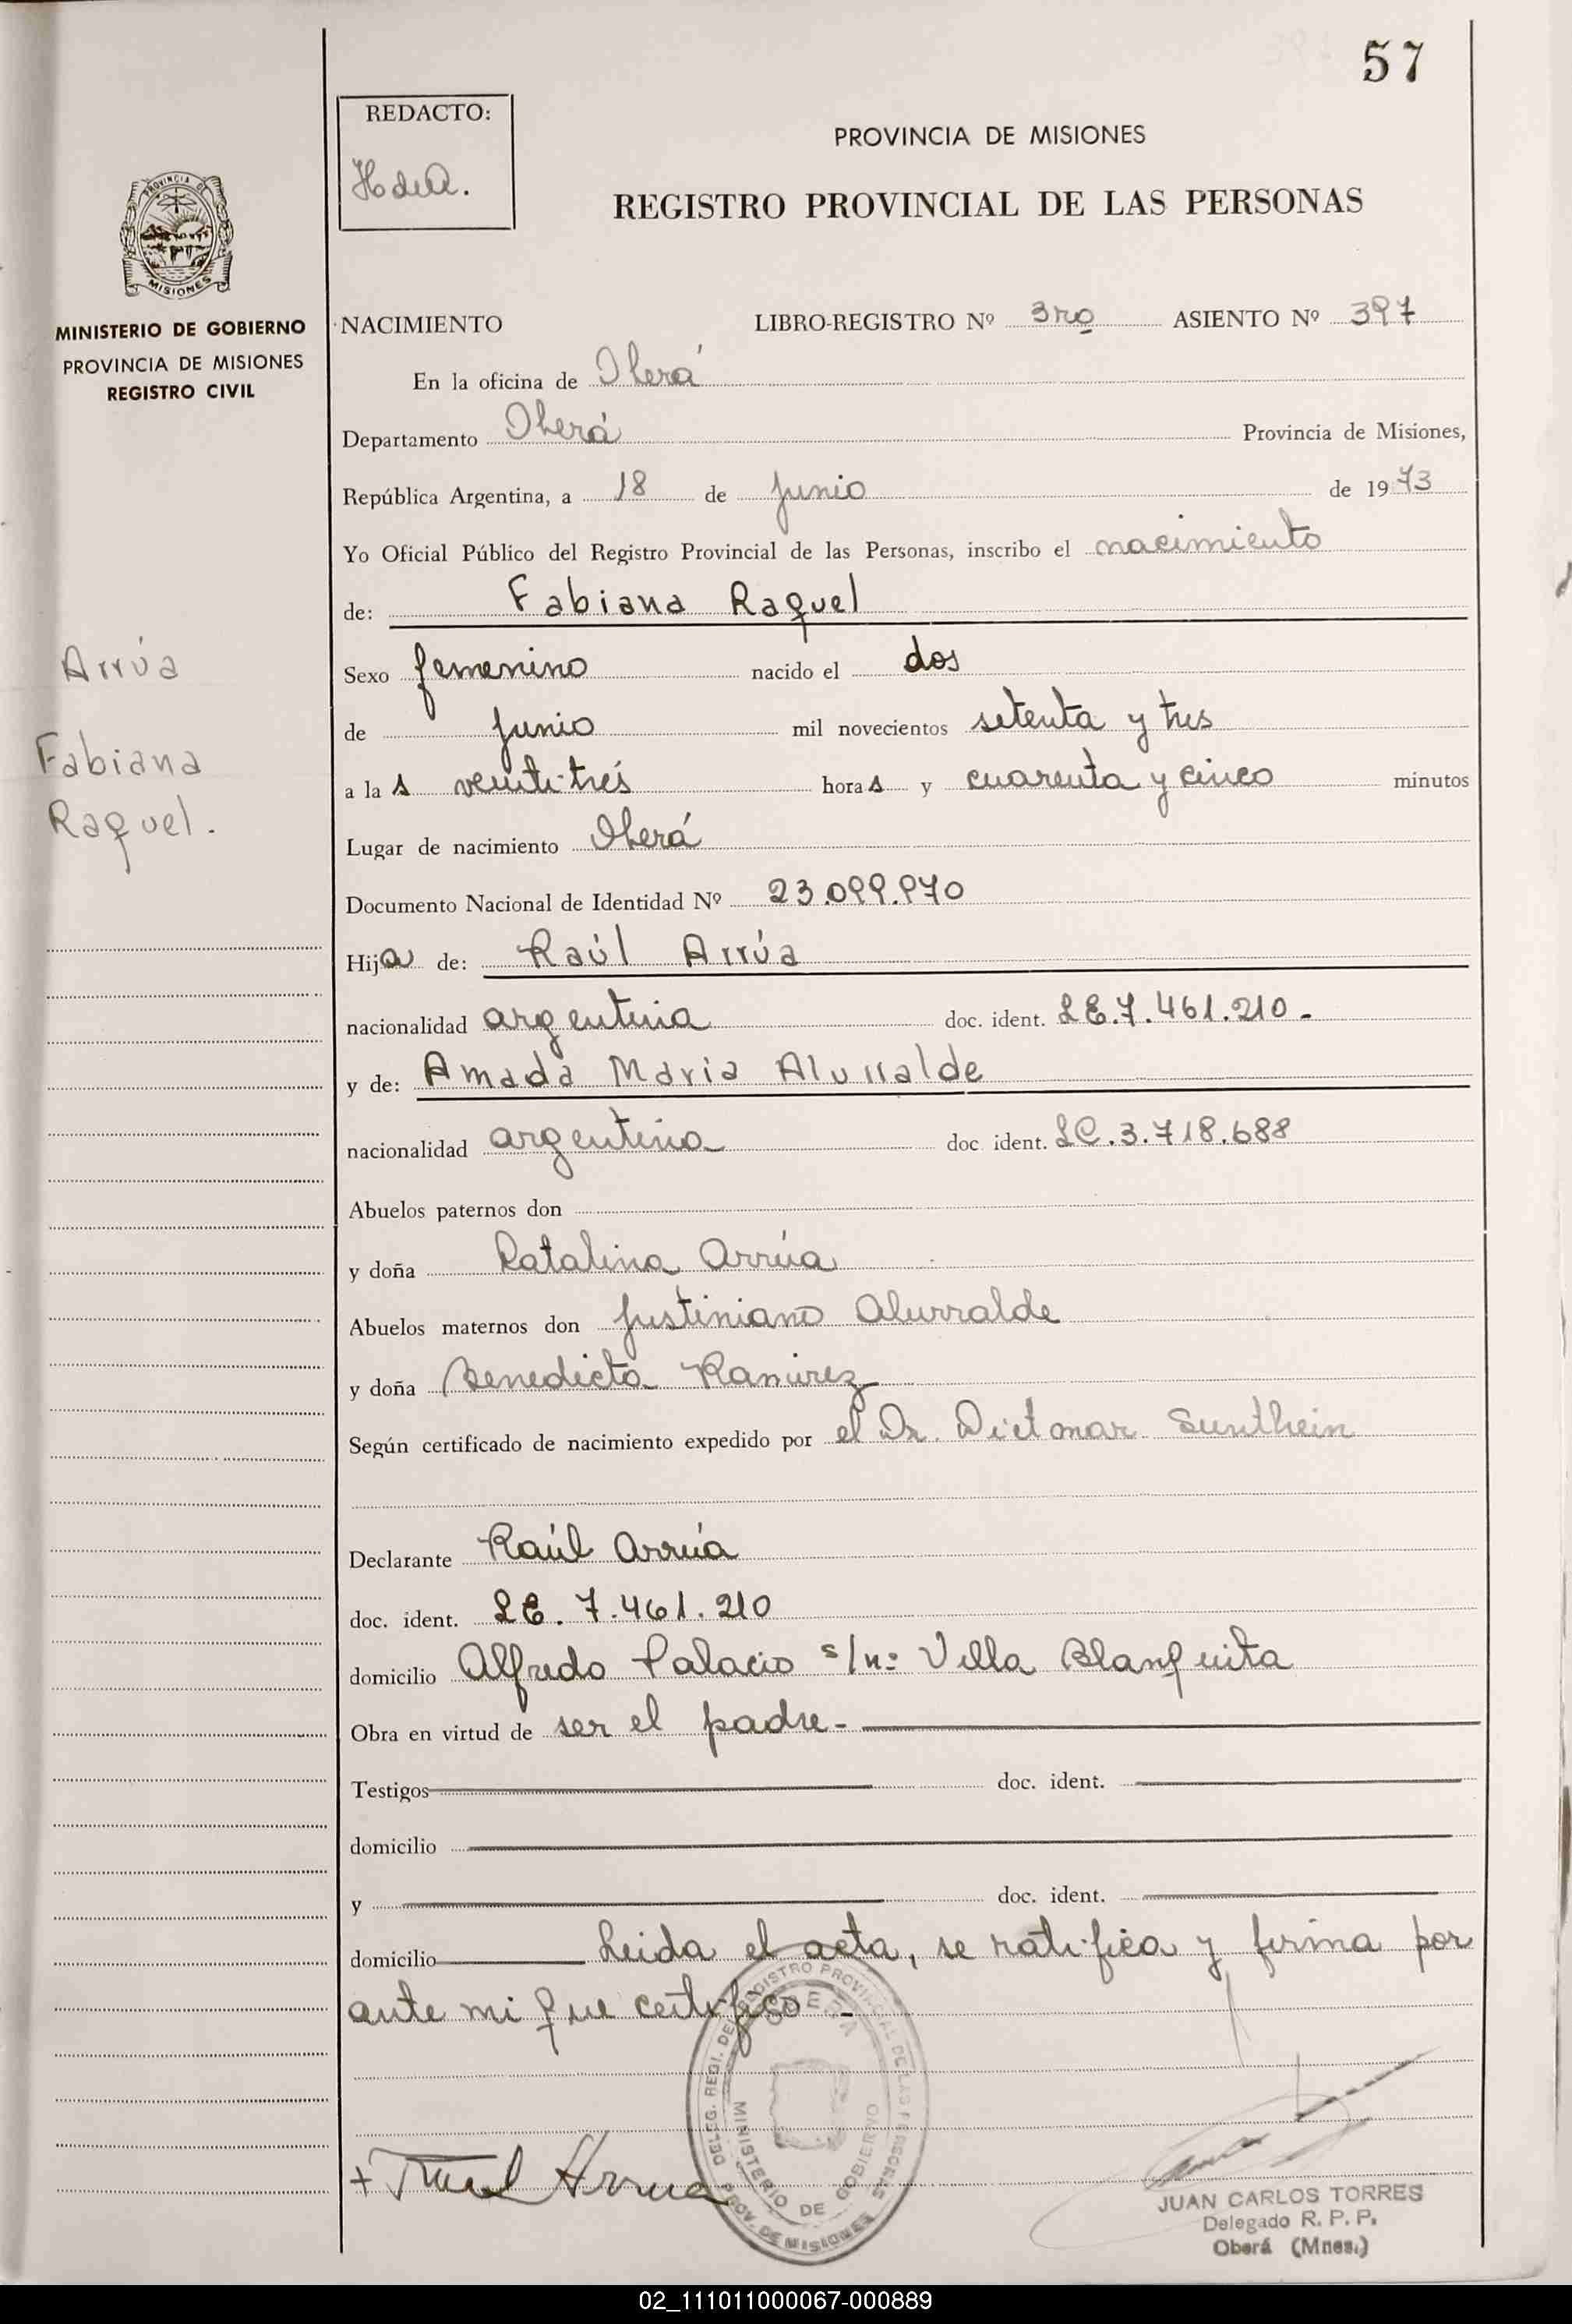 57
REDACTO:
H de A.
PROVINCIA DE MISIONES
REGISTRO PROVINCIAL DE LAS PERSONAS
PROVINCIA DE
MISIONES
MINISTERIO DE GOBIERNO
PROVINCIA DE MISIONES
REGISTRO CIVIL
NACIMIENTO LIBRO-REGISTRO Nº 3ro ASIENTO Nº 397
En la oficina de Oberá
Departamento Oberá Provincia de Misiones,
República Argentina, a 18 de Junio de 1973
Yo Oficial Público del Registro Provincial de las Personas, inscribo el nacimiento
de: Fabiana Raquel
Arrúa
Fabiana
Raquel.
Sexo femenino nacido el dos
de Junio mil novecientos setenta y tres
a las veinti-trés horas y cuarenta y cinco minutos
Lugar de nacimiento Oberá
Documento Nacional de Identidad Nº 23.099.970
Hija de: Raúl Arrúa
nacionalidad argentina doc. ident. LE.7.461.210.-
y de: Amada Maria Alurralde
nacionalidad argentina doc. ident. LC.3.718.688
Abuelos paternos don
y doña Catalina Arrúa
Abuelos maternos don Justiniano Alurralde
y doña Benedicta Ramirez
Según certificado de nacimiento expedido por el Dr. Dietmar Sunthein
Declarante Raúl Arrúa
doc. ident. LE. 7.461.210
domicilio Alfredo Palacio s/nº Villa Blanquita
Obra en virtud de ser el padre.-
Testigos doc. ident.
domicilio
y doc. ident.
domicilio Leida el acta, se ratifica y firma por
ante mi que certifico.-
DELEG. REGI. DEL REGISTRO PROVINCIAL DE LAS PERSONAS
OBERA
MINISTERIO DE GOBIERNO
PROV. DE MISIONES
+ Raul Arrua
JUAN CARLOS TORRES
Delegado R. P. P.
Oberá (Mnes.)
02_111011000067-000889